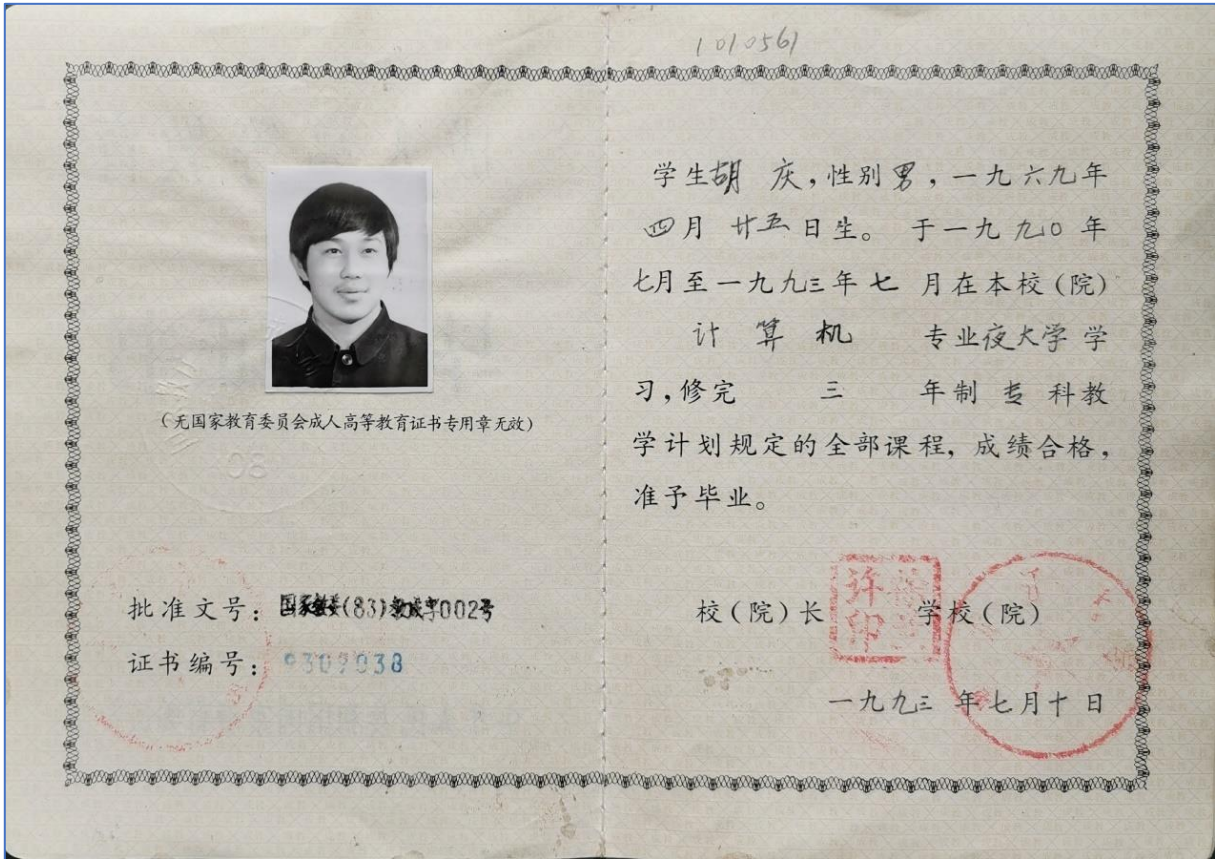 1010561
(无国家教育委员会成人高等教育证书专用章无效)
08
批准文号：国家教委(83)教成字002号
证书编号：9309038
学生胡 庆，性别男，一九六九年
四月 廿五日生。 于一九九〇年
七月至一九九三年七 月在本校(院)
计 算 机 专业夜大学 学
习，修完 三 年制 专 科教
学计划规定的全部课程，成绩合格，
准予毕业。
校(院)长 学校(院)
许
印
一九九三 年七月十 日